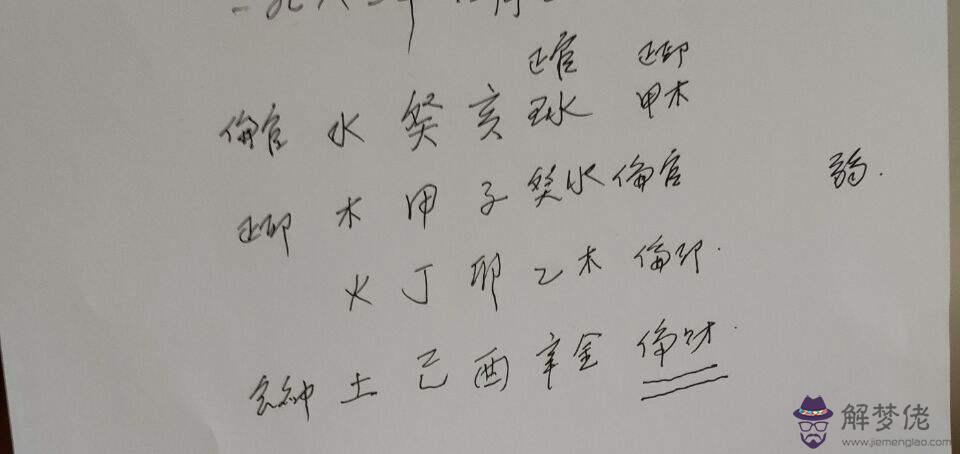 正官 正印
偏官 水 癸 亥 壬水 甲木
正印 木 甲 子 癸水 偏官 弱.
火 丁 卯 乙木 偏印.
食神 土 己 酉 辛金 偏财.
解梦佬
www.jiemenglao.com